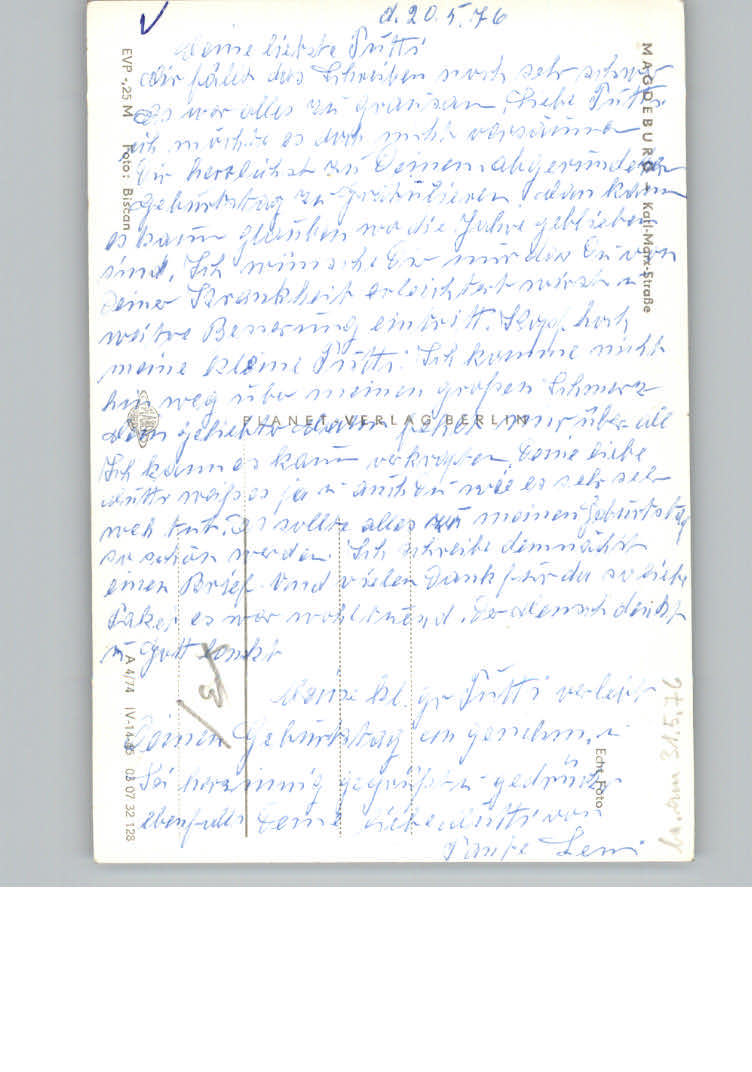 d. 20.5.76
Meine liebste Putti
Mir fällt das Schreiben noch sehr schwer
Es war alles zu grausam, Liebe Putti
ich möchte es doch nicht versäumen
Dir herzlichst zu Deinen abgerundeten
Geburtstag zu Gratulieren, Man kann
es kaum glauben wo die Jahre geblieben
sind. Ich wünsche Dir nur das Du von
Deiner Krankheit erleichtert wirst u
weitre Besserung eintritt. Kopf hoch
meine kleine Putti. Ich komme nicht
hin weg über meinen großen Schmerz
Mein geliebter Mann fehlt mir über all
Ich kann es kaum Deine liebe
Mutti weiß es ja u auch Du wie es sehr sehr
weh tut. Es sollte alles zu meinen Geburtstag
so schön werden. Ich schreibe demnächst
einen Brief. Und vielen Dank für das so liebe
Paket es war wohltuend. Der Mensch denkt
u Gott lenkt
Meine kl. gr Putti verlebt
Deinen Geburtstag angenehm, u
Sei herzinnig gegrüßt u gedrückt
ebenfalls Deine liebe Mutti von
Tante Leni
MAGDEBURG Karl-Marx-Straße
EVP -,25 M Foto: Biscan
PLANET-VERLAG BERLIN
A 4/74 IV-14- 03 07 32 128
Echt Foto
am 31.5.76